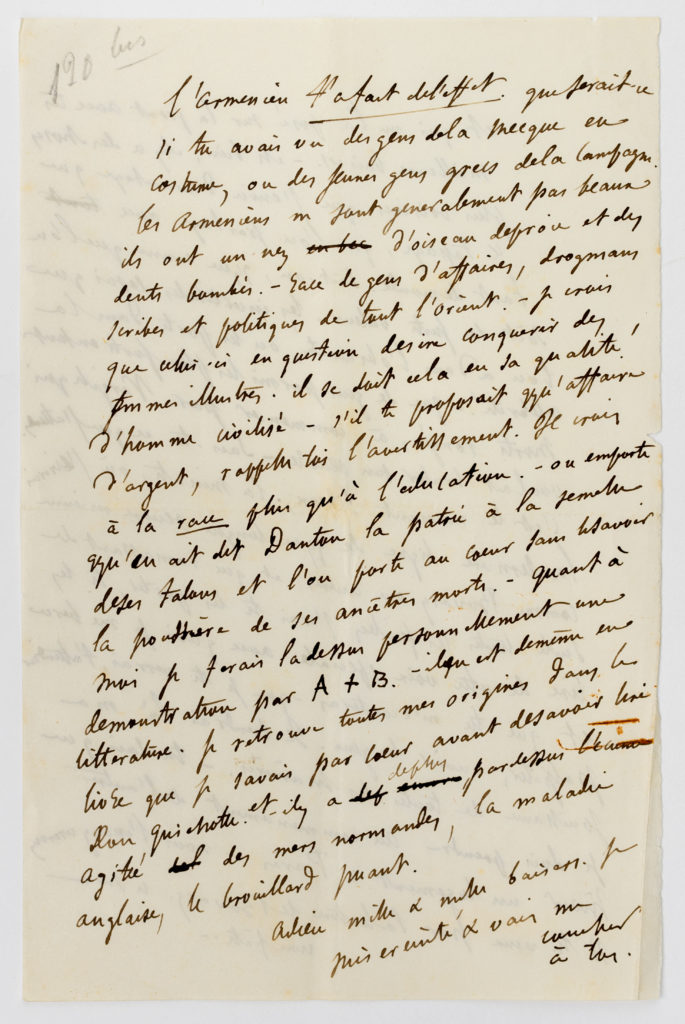 190 bis
l'armenien t'a fait de l'effet. que serait-ce
si tu avais vu des gens de la mecque en
costume, ou des jeunes gens grecs de la campagne.
les armeniens ne sont generalement pas beaux
ils ont un nez en bec d'oiseau de proie et des
dents bombées. – race de gens d'affaires, drogmans
scribes et politiques de tout l'orient. – je crois
que celui-ci en question desire conquerir des
femmes illustres. il se doit cela en sa qualité
d'homme civilisé – s'il te proposait qqu'affaire
d'argent, rappelle toi l'avertissement. Je crois
à la race plus qu'à l'education. – on emporte
qqu'en ait dit Danton la patrie à la semelle
de ses talons et l'on porte au coeur sans le savoir
la poussière de ses ancêtres morts. – quant à
moi je ferais la dessus personnellement une
demonstration par A + B. – il en est de même en
litterature. je retrouve toutes mes origines dans le
livre que je savais par coeur avant de savoir lire
Don quichotte. et il y a de plus par dessus l'écume
agitée des mers normandes, la maladie
anglaise, le brouillard puant.
adieu mille & mille baisers. je
& vais me
coucher
à toi.